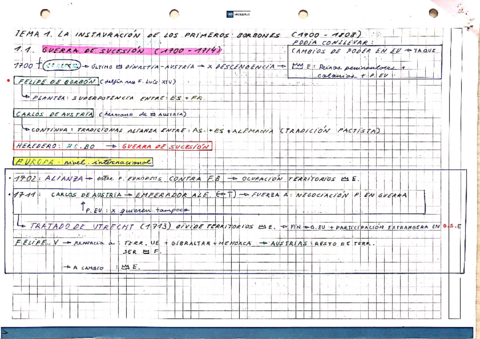 TEMA 1. LA INSTAURACIÓN DE LOS PRIMEROS BORBONES (1700 - 1788)
1.1. GUERRA DE SUCESIÓN (1700 - 1714)
PODÍA CONLLEVAR:
CAMBIOS DE PODER EN EU → JAQUE
E: Reinos peninsulares +
colonias + P. EU
1700 † → ÚLTIMO DINASTIA-AUSTRIA → X DESCENDENCIA →
• FELIPE DE BORBÓN (delfín nas F. Luis XIV)
PLANTEA: SUPERPOTENCIA ENTRE: ES + FR.
CARLOS DE AUSTRIA (Hermano de AUSTRIA)
CONTINUA: TRADICIONAL ALIANZA ENTRE: AS. + ES + ALEMANIA (TRADICIÓN PACTISTA)
HEREDERO: BO → GUERRA DE SUCESIÓN
EUROPA: nivel internacional
• 1702: ALIANZA → P. EUROPEOS CONTRA F.B → OCUPACIÓN TERRITORIOS E.
• 1711: CARLOS DE AUSTRIA → EMPERADOR ALE. → FUERZA A: NEGOCIACIÓN P. EN GUERRA
↑ P. EU: X quieren tampoco
→ TRATADO DE UTRECHT (1713) DIVIDE TERRITORIOS E. → FIN → G. EU + PARTICIPACIÓN EXTRANGERA EN G.S. E
FELIPE. V → TERR. UE + GIBRALTAR + MENORCA → AUSTRIAS: RESTO DE TERR.
SER F.
→ A CAMBIO : E.